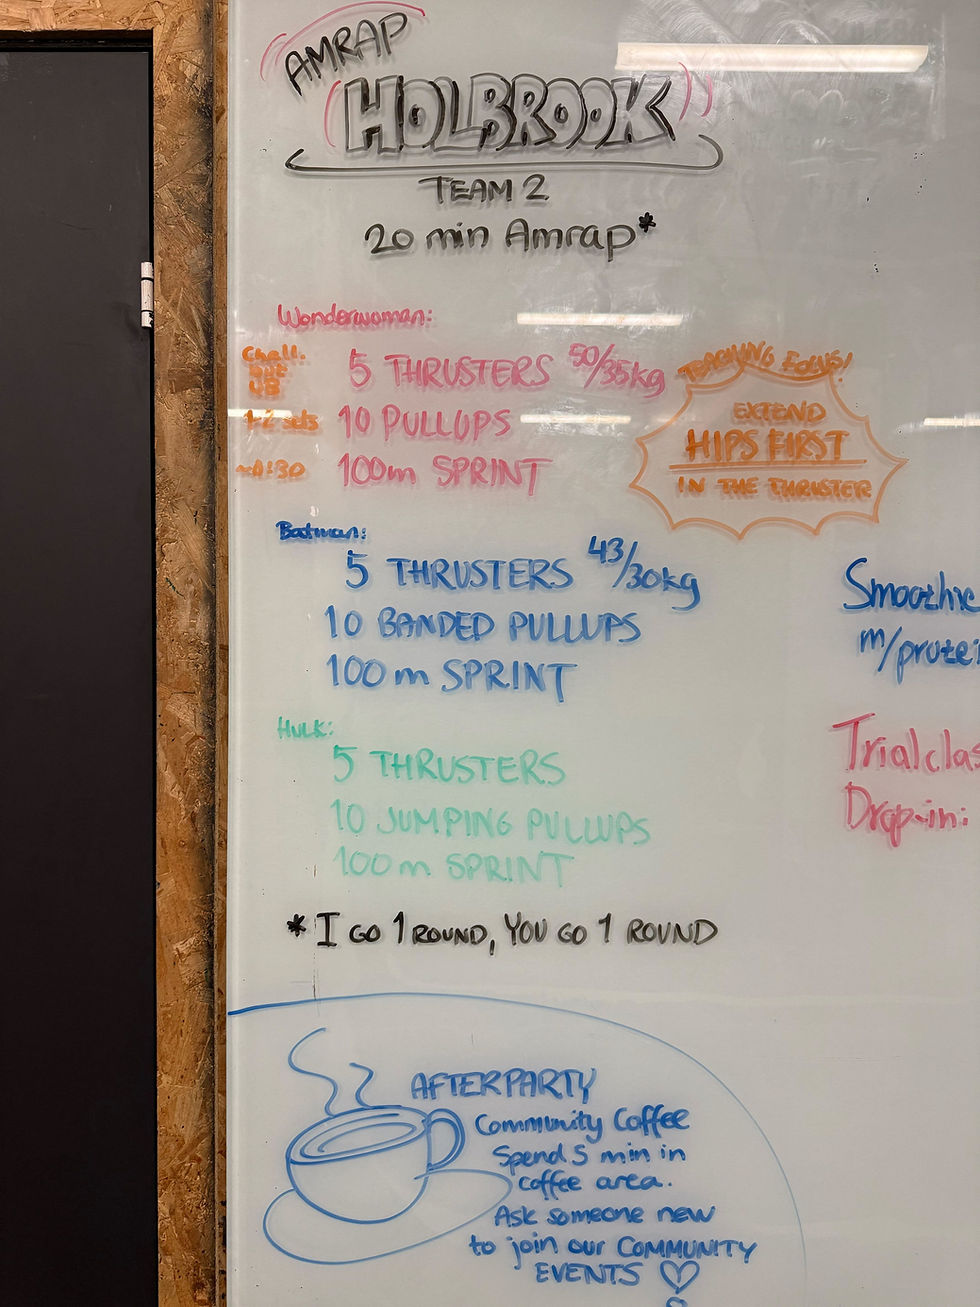 AMRAP
HOLBROOK
TEAM 2
20 min Amrap*
Wonderwoman:
Chall.
but
UB
1-2 sets
~1:30
5 THRUSTERS 50/35kg
10 PULLUPS
100m SPRINT
TEACHING FOCUS!
EXTEND
HIPS FIRST
IN THE THRUSTER
Batman:
5 THRUSTERS 43/30kg
10 BANDED PULLUPS
100m SPRINT
Smoothie
m/protei
Hulk:
5 THRUSTERS
10 JUMPING PULLUPS
100m SPRINT
Trialclas
Drop-in:
* I GO 1 ROUND, YOU GO 1 ROUND
AFTERPARTY
Community Coffee
Spend 5 min in
coffee area.
Ask someone new
to join our COMMUNITY
EVENTS ♡